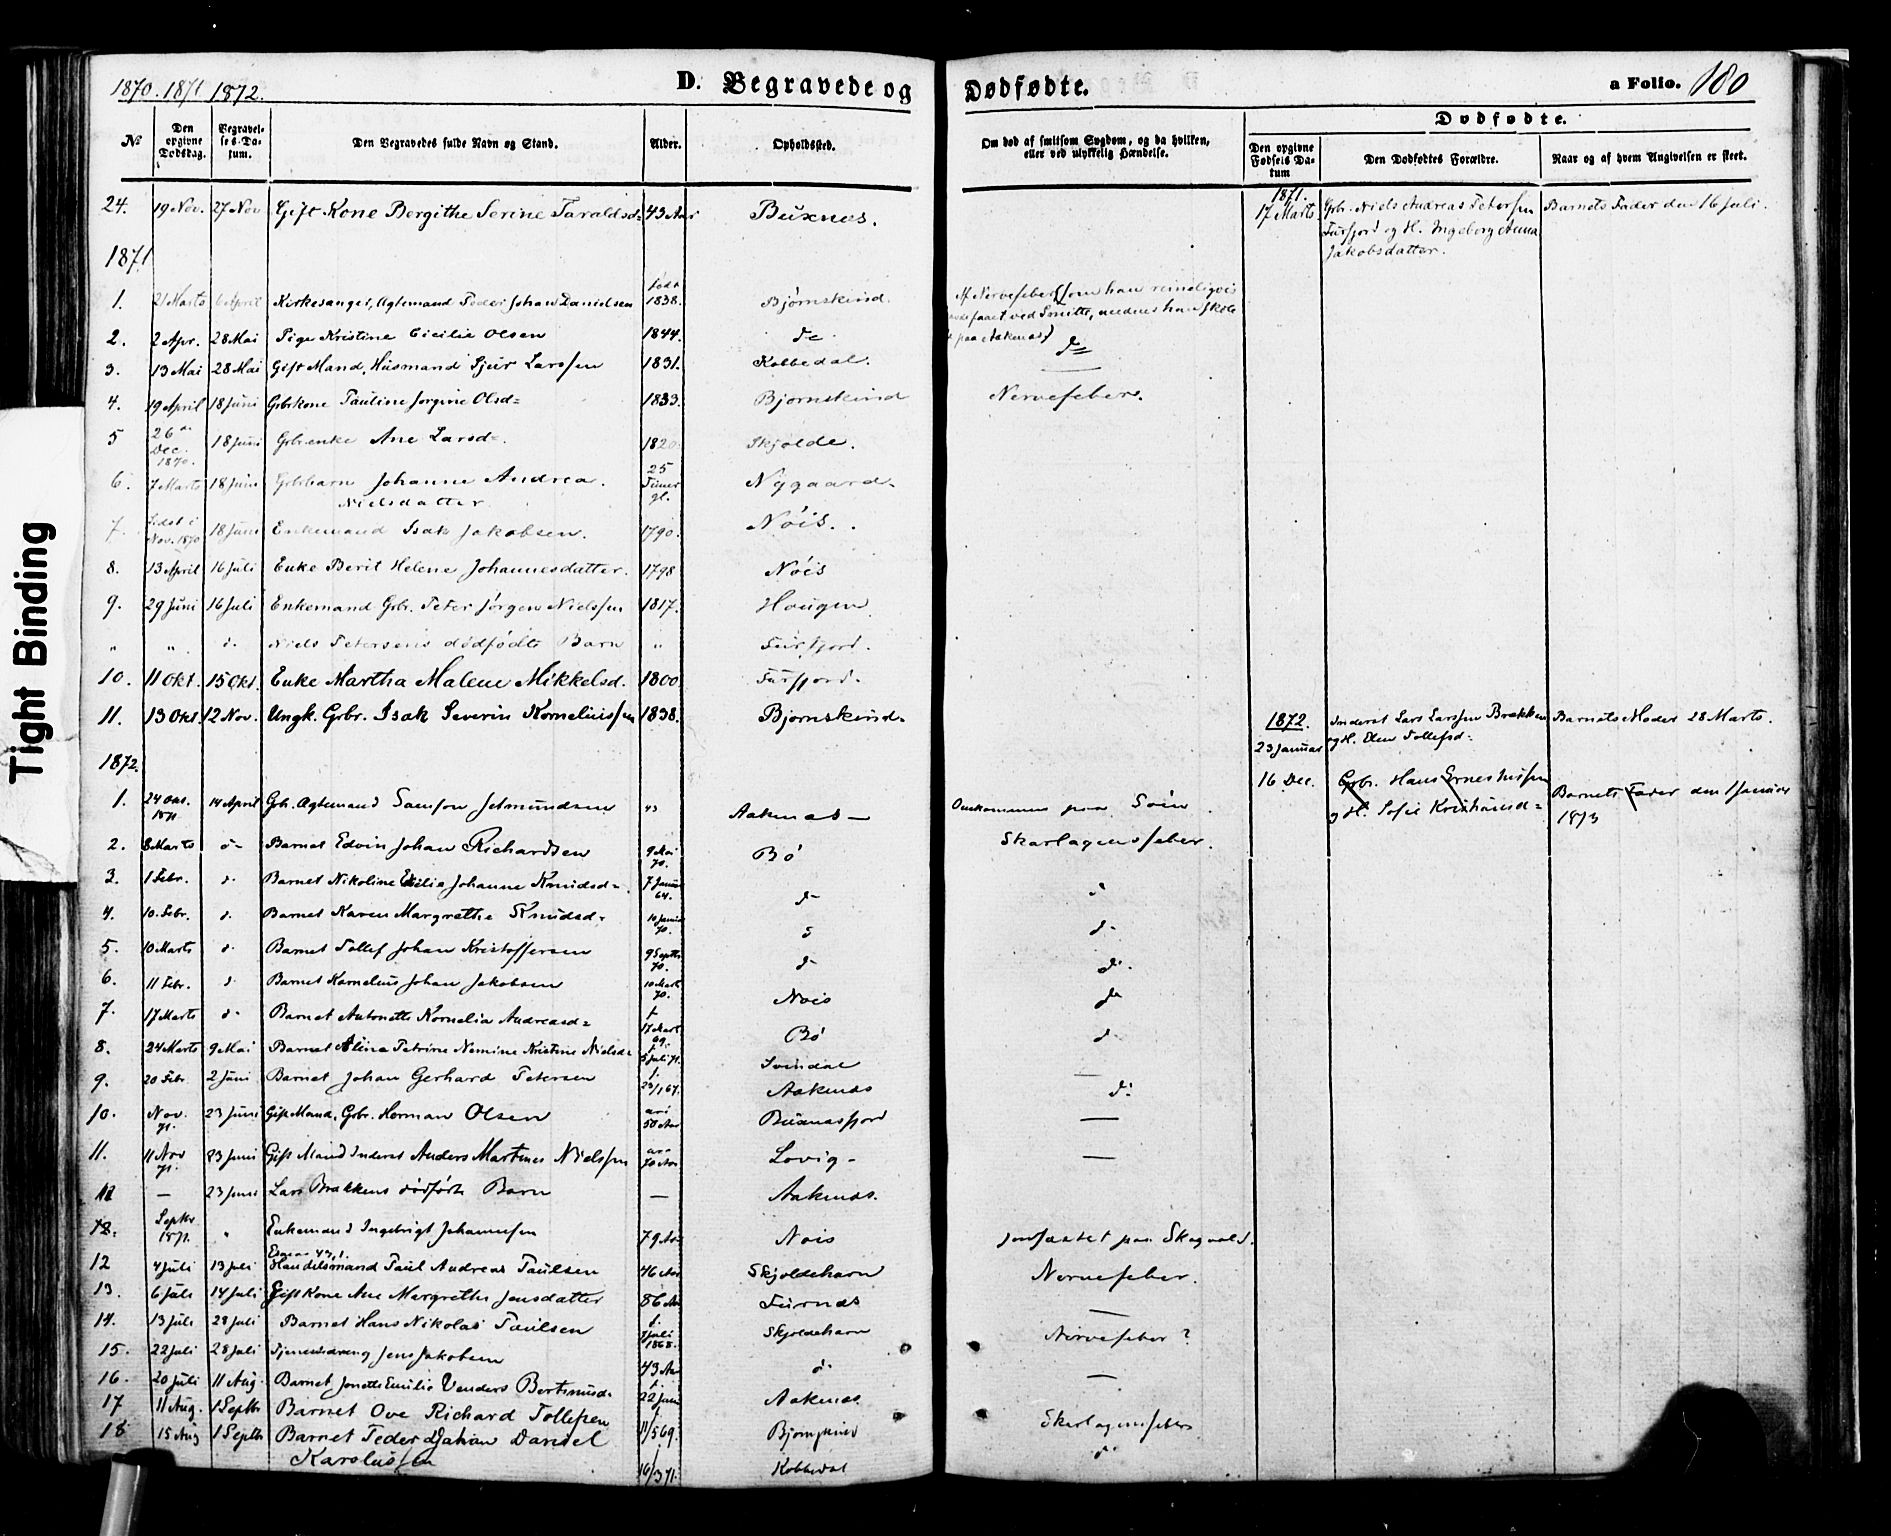 1870. 1871 1872.
D. Begravede og Dødfødte.
a Folio. 180
No
Den opgivne Dødsdag.
Begravelses-Datum.
Den Begravedes fulde Navn og Stand.
Alder.
Opholdssted.
Om død af smitsom Sygdom, og da hvilken, eller ved ulykkelig Hændelse.
Dødfødte.
Den opgivne Fødsels Datum
Den Dødfødtes Forældre.
Naar og af hvem Angivelsen er skeet.
24. 19 Nov. 27 Nov Gift Kone Bergithe Serine Taraldsd= 43 Aar Buxnæs.
1871. 17 Marts. Grbr. Niels Andreas Petersen Barnets Fader den 16 Juli.
Furfjord og H. Ingeborg Anna
Jakobsdatter.
1871
1. 21 Marts 6 April Kirkesanger, Ægtemand Peder Johan Danielsen født 1838. Bjørnskind. Af Nervefeber (som han rimeligvis
ved Smitte, medens han
paa Aaknæs)
2. 2 Apr. 28 Mai Pige Kristine Cicilie Olsen 1844. do
3. 13 Mai 28 Mai Gift Mand, Husmand Sjur Larssen 1831. Kobbedal. —
4. 19 April 18 Juni Grbrkone Pauline Jorgine Olsd= 1833. Bjørnskind Nervefeber.
5 26 Dec. 1870. 18 Juni Grbr.enke Ane Larsd=. 1820. Skjolde.
6. 7 Marts 18 Juni Grbrbarn Johanne Andrea. 25 Timer gl. Nygaard.
Nielsdatter
7. Sidst i Nov. 1870 18 Juni Enkemand Isak Jakobsen. 1790. Nöis.
8. 13 April 16 Juli Enke Berit Helene Johannesdatter. 1798 Nöis
9. 29 Juni 16 Juli Enkemand Grbr. Peter Jørgen Nielssen 1817. Hougen
" " d. Niels Petersens dødfødte Barn " Furfjord.
10. 11 Okt. 15 Okt. Enke Martha Malene Mikkelsd. 1800 Furfjord.
11. 13 Okt. 12 Nov. Ungk. Grbr. Isak Severin Korneliussen 1838. Bjørnskind.
1872. 23 Januar Inderst Lars Larssen Brækken Barnets Moder 28 Marts.
og H. Elen Tollefsd=
1872.
16 Dec. Grbr. Hans Ernestussen Barnets Fader den 1 Januar
og H. Sofie Kristiansd= 1873
1. 24 Okt. 1871. 14 April Grb. Ægtemand Samson Jetmundsen 43 Aaknæs — Omkommen paa Søen
2. 8 Marts d- Barnet Edvin Johan Richardsen 9 Mai 70. Bö Skarlagensfeber.
3. 1 Febr. d. Barnet Nikoline Johanne Knudsd=. 7 Januar 64. d- d
4. 10. Febr. d. Barnet Karen Margrethe Knudsd= 10 Januar 70. d d.
5. 10 Marts d. Barnet Tollef Johan Kristoffersen 9 Septbr 70. d- d.
6. 11 Febr. d. Barnet Kornelius Johan Jakobsen 10 Marts 70. Nöis do
7. 17 Marts d. Barnet Antonette Kornelia Andreasd= f 17 Mart 69. Bö d
8. 24 Marts 9 Mai Barnet Alina Petrine Nemine Kristine Nielsd= f 5 Juli 71. Svindal —
9. 20 Febr 2 Juni Barnet Johan Gerhard Petersen f. 23/1 67. Aaknæs d.
10. Nov. 71. 23 Juni Gift Mand, Grbr. Herman Olsen 50 Aar Buxnæsfjord —
11. 11 Nov 71. 23 Juni Gift Mand Inderst Anders Martinus Nielssen 70 Aar Lovig- —
— 23 Juni Lars Brækkens dödfödte Barn — Aaknæs.
12. Septbr 1871. " Enkemand Ingebrigt Johannesen 79 Aar Nöis
12 4 Juli 13 Juli Handelsmand Paul Andreas Paulsen 46 Aar Skjoldehavn Nervefeber.
13. 6 Juli 14 Juli Gift Kone Ane Margrethe Jensdatter 86 Aar Furnæs —
14. 13 Juli 28 Juli Barnet Hans Nikolai Paulsen f. Juli 1868. Skjoldehavn Nervefeber?
15. 22 Juli 28 Juli Tjenestedreng Jens Jakobsen 43 Aar d.
16. 20 Juli 11 Aug. Barnet Jonette Emilie Bertinusd= f 22 Juni Aaknæs —
17 11 Aug. 1 Septbr Barnet Ove Richard Tollefsen f 11/5 69. Bjørnskind Skarlagensfeber
18 15 Aug 1 Septbr Barnet Peder Johan Daniel f 16/3 71. Kobbedal d
Karolussen
Tight Binding